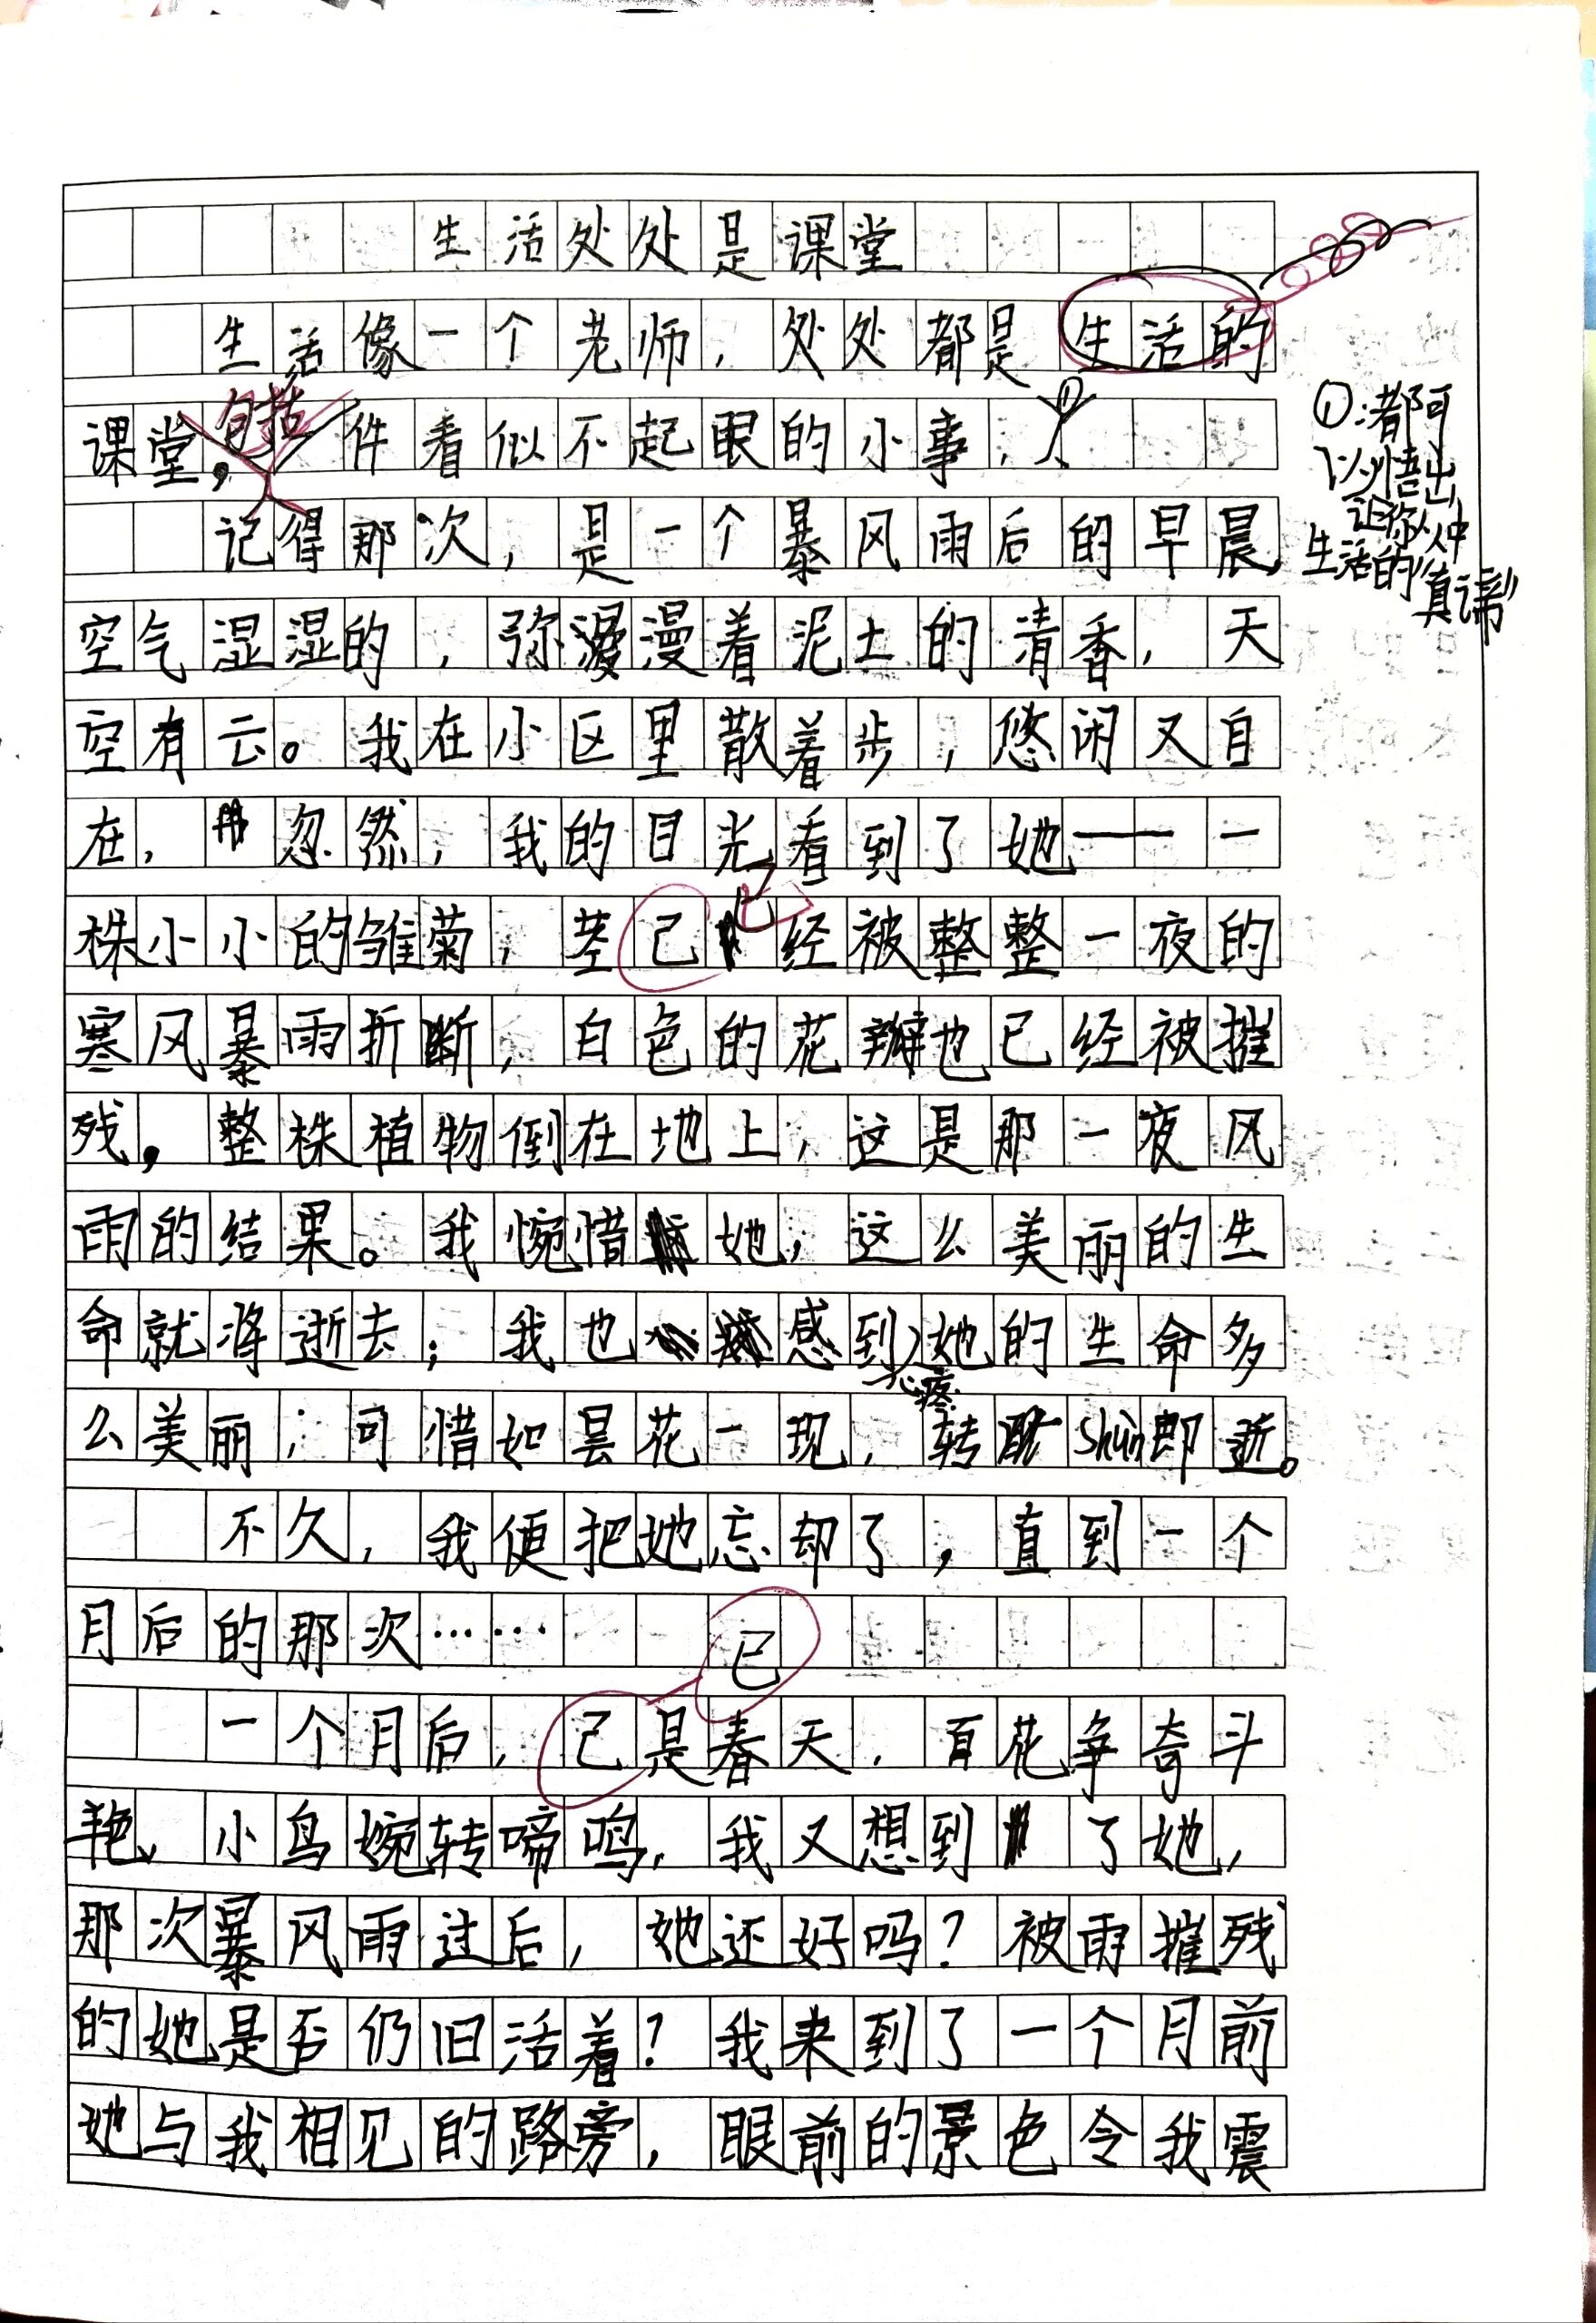 生活处处是课堂
生活像一个老师，处处都是生活的
课堂，包括件看似不起眼的小事，
①：都可
以悟出
让你从中
生活的“真谛”
记得那次，是一个暴风雨后的早晨，
空气湿湿的，弥漫漫着泥土的清香，天
空有云。我在小区里散着步，悠闲又自
在，忽然，我的目光看到了她——一
株小小的雏菊，茎己已经被整整一夜的
寒风暴雨折断，白色的花瓣也已经被摧
残，整株植物倒在地上，这是那一夜风
雨的结果。我惋惜她，这么美丽的生
命就将逝去；我也感到心疼她的生命多
么美丽；可惜如昙花一现，转shùn即逝。
不久，我便把她忘却了，直到一个
月后的那次……
已
一个月后，己是春天，百花争奇斗
艳，小鸟婉转啼鸣，我又想到了她，
那次暴风雨过后，她还好吗？被雨摧残
的她是否仍旧活着？我来到了一个月前
她与我相见的路旁，眼前的景色令我震